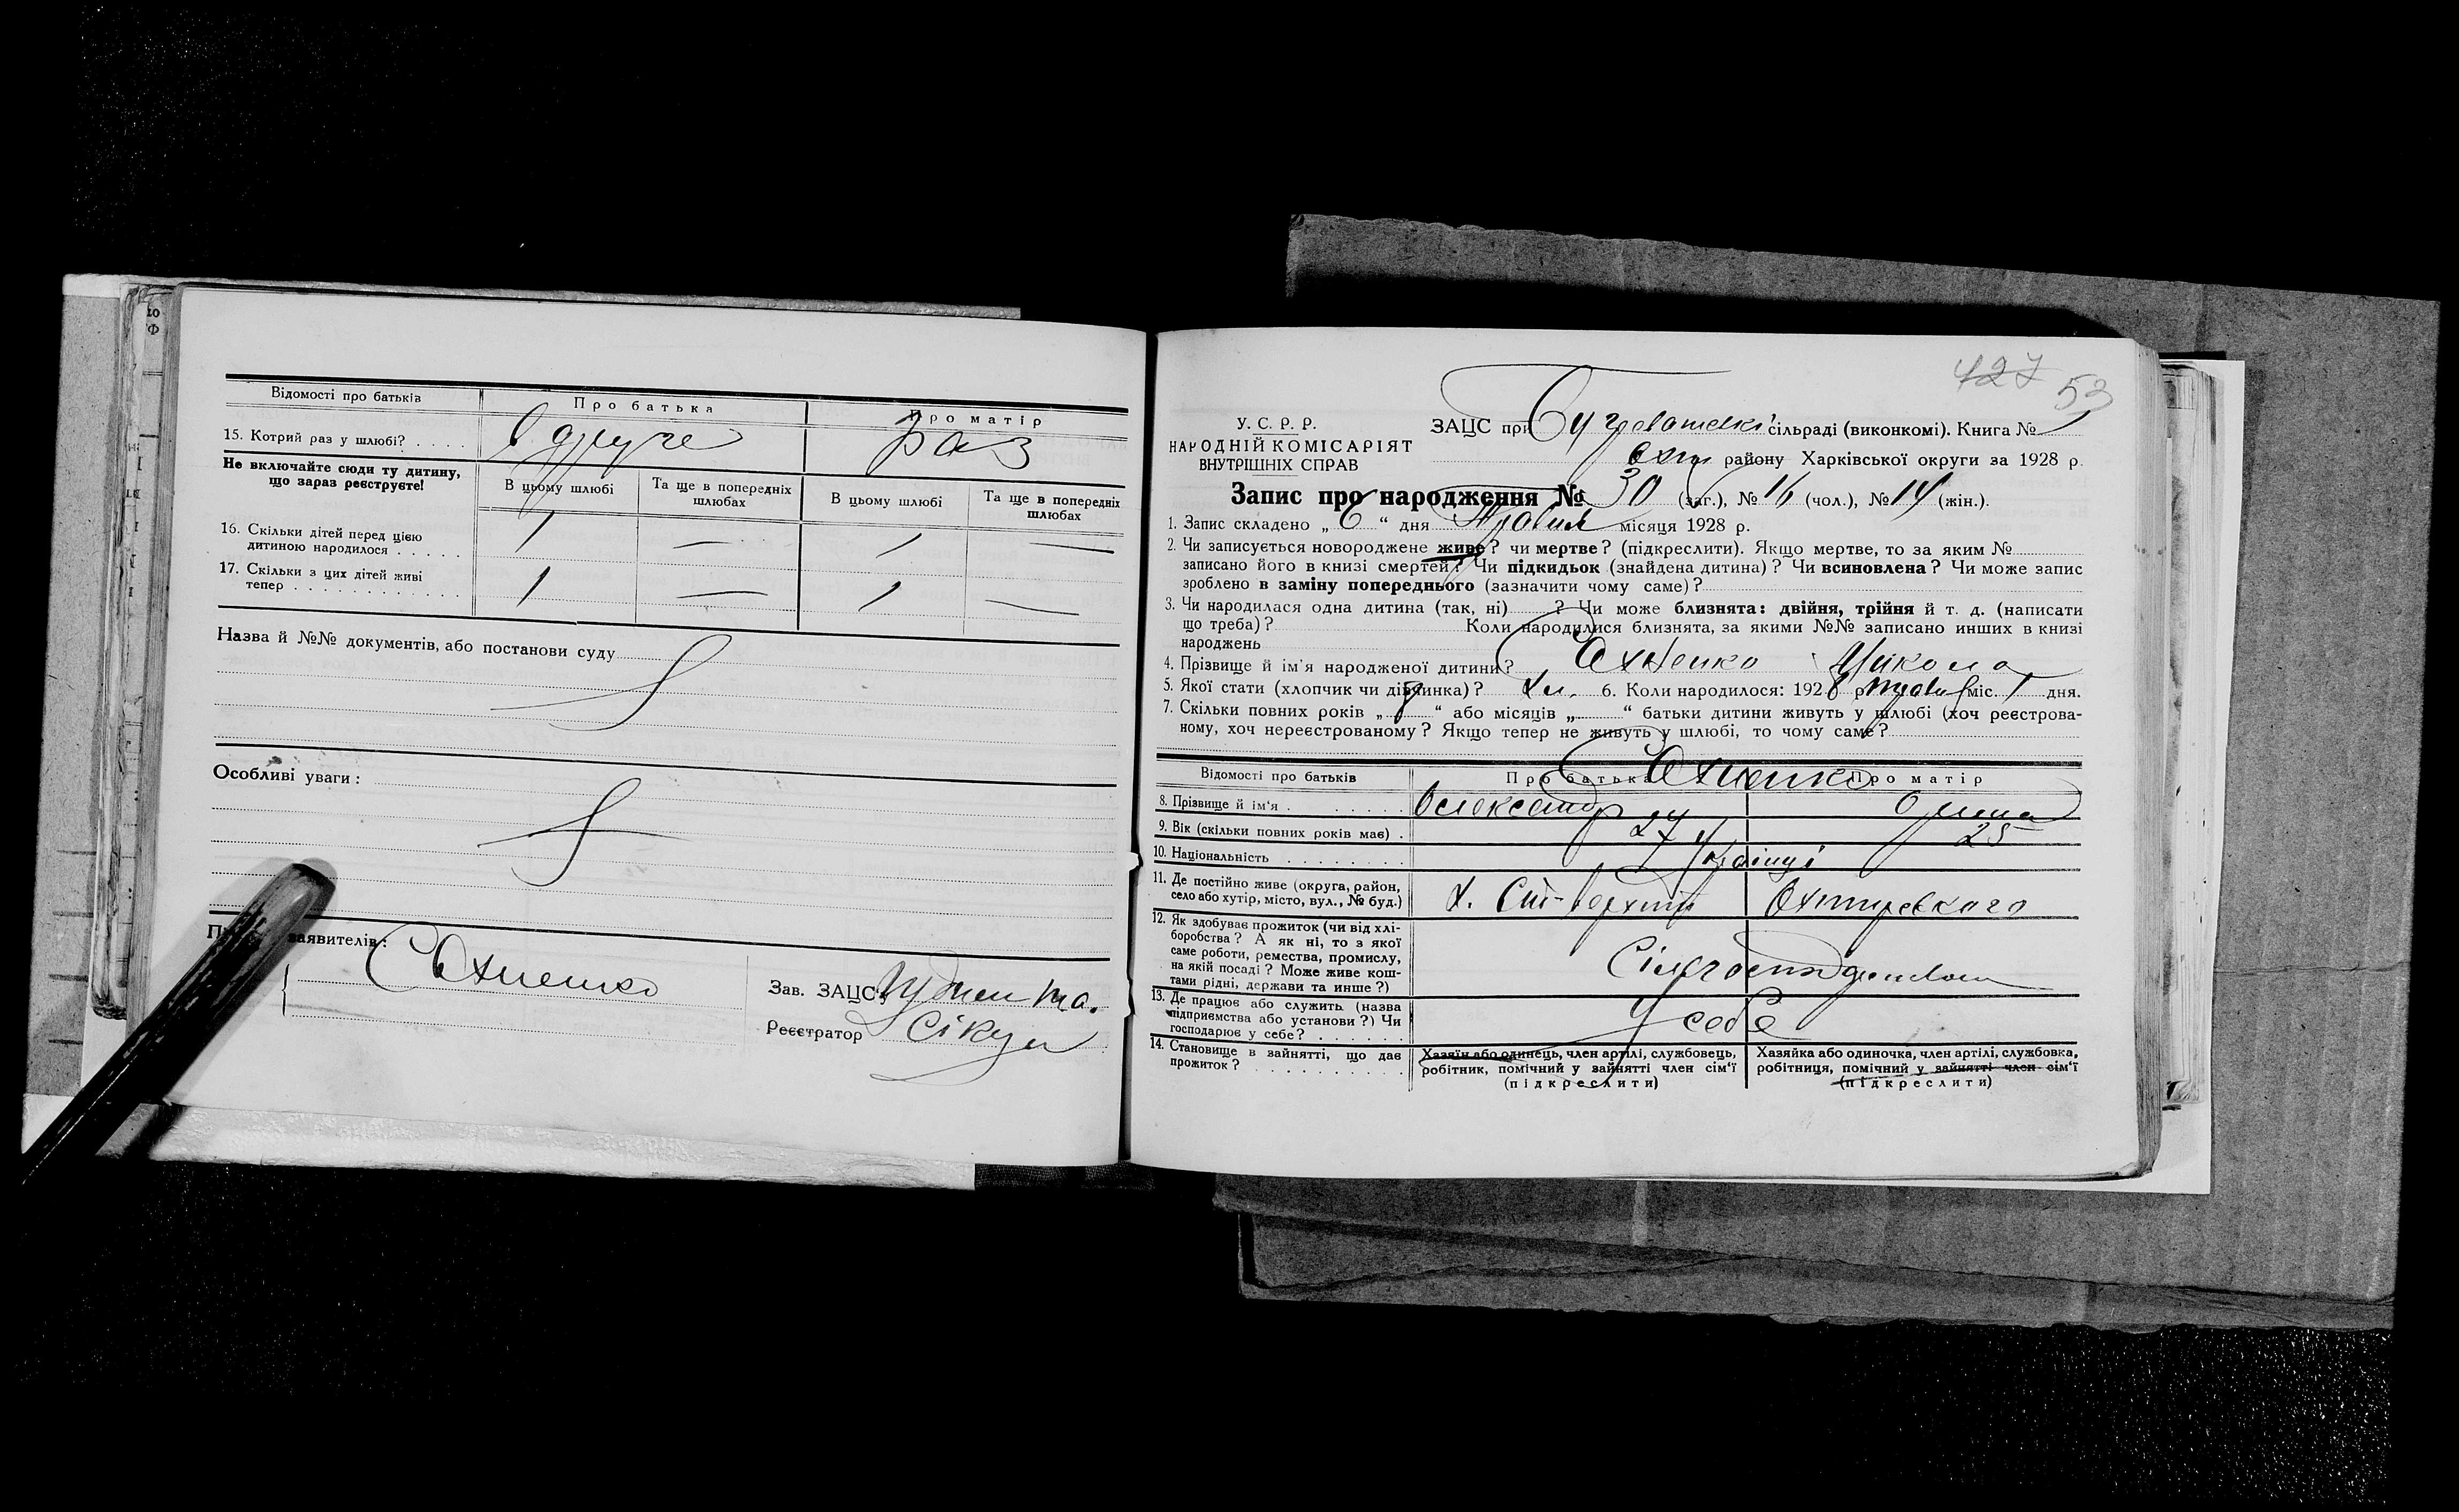 Відомості про батьків
Про батька
Про матір
15. Котрий раз у шлюбі? . . . .
вдруге
раз
Не включайте сюди ту дитину,
що зараз реєструєте!
В цьому шлюбі
Та ще в попередніх
шлюбах
В цьому шлюбі
Та ще в попередніх
шлюбах
16. Скільки дітей перед цією
дитиною народилося . . . . .
1 — 1 —
17. Скільки з цих дітей живі
тепер . . . . . . . . . . . . .
1 — 1 —
Назва й №№ документів, або постанови суду
Особливі уваги:
заявителів:
Охненко
Зав. ЗАЦС
Реєстратор
427 53
У. С. Р. Р.
НАРОДНІЙ КОМІСАРІЯТ
ВНУТРІШНІХ СПРАВ
ЗАЦС при сільраді (виконкомі). Книга №
Охт. району Харківської округи за 1928 р.
Запис про народження № 30 (заг.), № 16 (чол.), № 14 (жін.).
1. Запис складено „ 6 “ дня Травня місяця 1928 р.
2. Чи записується новороджене живе? чи мертве? (підкреслити). Якщо мертве, то за яким №
записано його в книзі смертей? Чи підкидьок (знайдена дитина)? Чи всиновлена? Чи може запис
зроблено в заміну попереднього (зазначити чому саме)?
3. Чи народилася одна дитина (так, ні) ? Чи може близнята: двійня, трійня й т. д. (написати
що треба)? Коли народилися близнята, за якими №№ записано инших в книзі
народжень
4. Прізвище й ім'я народженої дитини? Охненко Микола
5. Якої стати (хлопчик чи дівчинка)? хл. 6. Коли народилося: 1928 р. травня міс. 1 дня.
7. Скільки повних років „ “ або місяців „ “ батьки дитини живуть у шлюбі (хоч реєстрова-
ному, хоч нереєстрованому? Якщо тепер не живуть у шлюбі, то чому саме?
Відомості про батьків
Про батька
Про матір
Охненко
8. Прізвище й ім'я . . . . . . .
Олександр
9. Вік (скільки повних років має) .
27
25
10. Національність . . . . . . . .
Українці
11. Де постійно живе (округа, район,
село або хутір, місто, вул., № буд.)
Охтирського
12. Як здобуває прожиток (чи від хлі-
боробства? А як ні, то з якої
саме роботи, ремества, промислу,
на якій посаді? Може живе кош-
тами рідні, держави та инше?)
13. Де працює або служить (назва
підприємства або установи?) Чи
господарює у себе? . . . . . .
У себе
14. Становище в зайнятті, що дає
прожиток? . . . . . . . . . . .
Хазяїн або одинець, член артілі, службовець,
робітник, помічний у зайнятті член сім'ї
(підкреслити)
Хазяйка або одиночка, член артілі, службовка,
робітниця, помічний у зайнятті член сім'ї
(підкреслити)